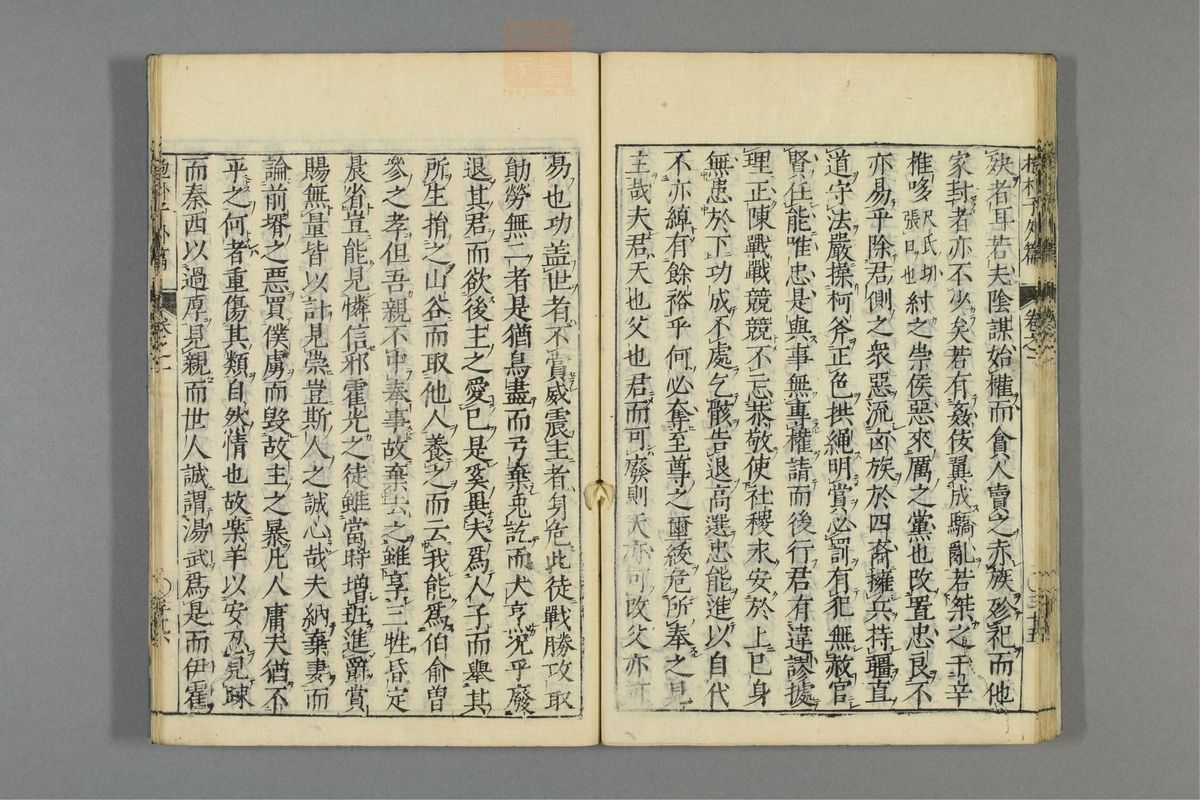 抱朴子外篇 卷之一 ○三十五
決者耳若夫陰謀始權而貪人賣之赤族殄祀而他
家封者亦不少矣若有姦佞翼成驕亂若桀之干辛
推哆尺氏切張口也紂之崇侯惡來厲之黨也改置忠良不
亦易乎除君側之衆惡流凶族於四裔擁兵持疆直
道守法嚴操柯斧正色拱繩明賞必罰有犯無赦官
賢任能唯忠是與事無專權請而後行君有違謬據
理正陳戰戰競競不忘恭敬使社稷永安於上已身
無患於下功成不處乞骸告退高選忠能進以自代
不亦綽有餘裕乎何必奪至尊之璽紱危所奉之見
主哉夫君天也父也君而可廢則天亦可改父亦可
易也功盖世者不賞威震主者身危此徒戰勝攻取
勛勞無二者是猶鳥盡而弓棄兎訖而犬烹況乎廢
退其君而欲後主之愛已是奚異夫爲人子而舉其
所生捐之山谷而取他人養之而云我能爲伯俞曽
參之孝但吾親不中奉事故棄去之雖享三牲昏定
晨省豈能見憐信邪霍光之徒雖當時増班進爵賞
賜無量皆以計見崇豈斯人之誠心哉夫納棄妻而
論前壻之惡買僕虜而毀故主之暴凡人庸夫猶不
平之何者重傷其類自然情也故楽羊以安忍見踈
而秦西以過厚見親而世人誠謂湯武爲是而伊霍
抱朴子外篇 卷之一 ○三十六